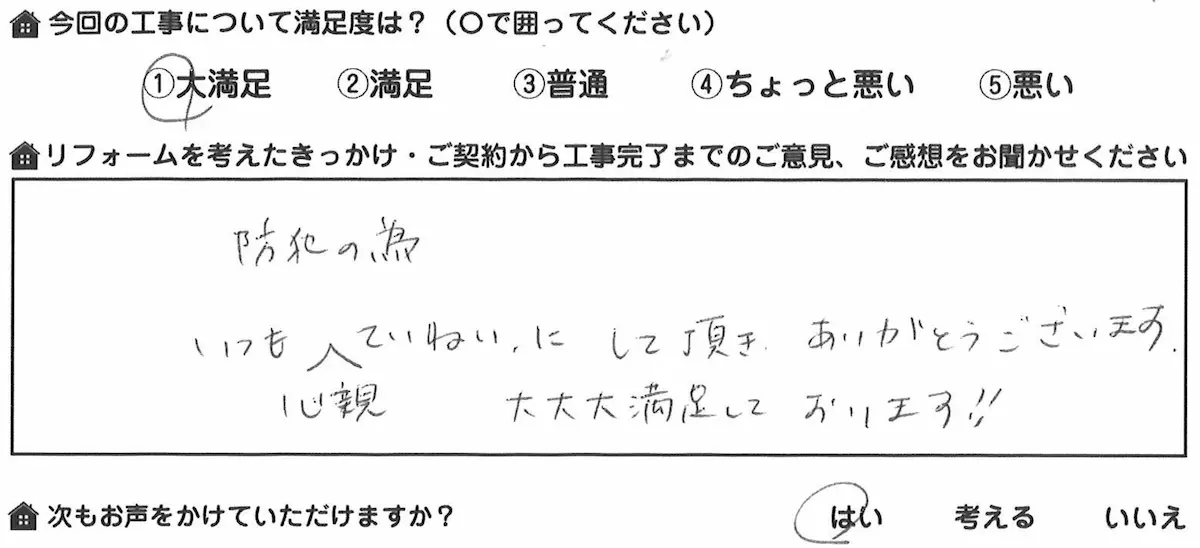 今回の工事について満足度は？（○で囲ってください）
①大満足 ②満足 ③普通 ④ちょっと悪い ⑤悪い
リフォームを考えたきっかけ・ご契約から工事完了までのご意見、ご感想をお聞かせください
防犯の為
いつも ていねいに して頂き ありがとうございます.
心親 大大大満足して おります!!
次もお声をかけていただけますか？ はい 考える いいえ